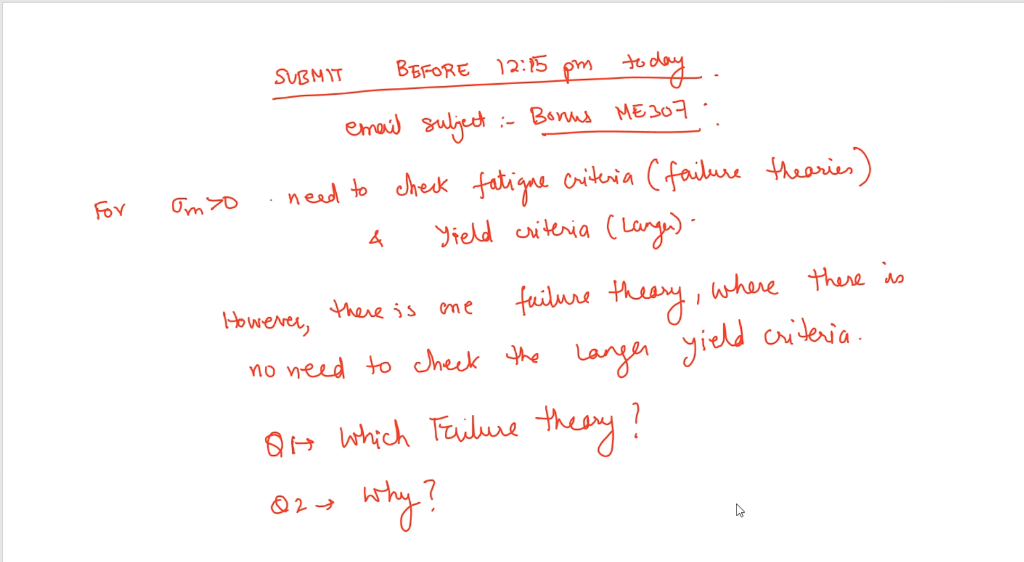 SUBMIT BEFORE 12:15 pm today.
email subject :- Bonus ME307.
For σm>0 . need to check fatigue criteria (failure theories)
& Yield criteria (Langer).
However, there is one failure theory, where there is
no need to check the Langer yield criteria.
Q1→ Which Failure theory?
Q2→ Why?